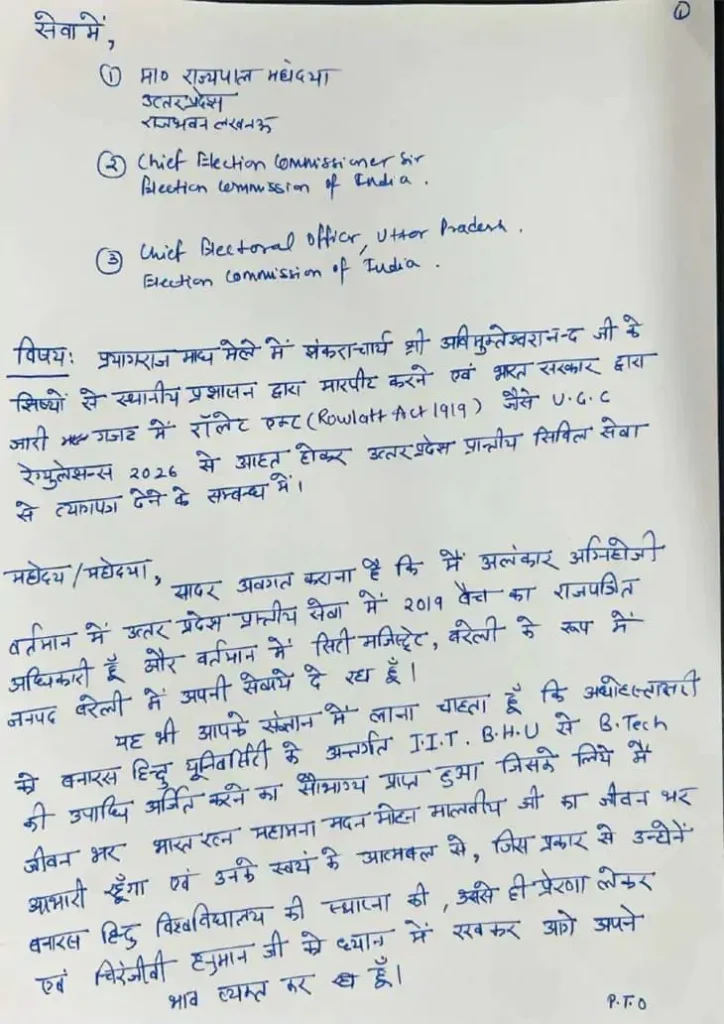 ①
सेवा में,
① मा० राज्यपाल महोदया
उत्तर प्रदेश
राजभवन लखनऊ
② Chief Election Commissioner Sir
Election Commission of India.
③ Chief Electoral Officer, Uttar Pradesh.
Election Commission of India.
विषय: प्रयागराज माघ मेले में शंकराचार्य श्री अविमुक्तेश्वरानन्द जी के
शिष्यों से स्थानीय प्रशासन द्वारा मारपीट करने एवं भारत सरकार द्वारा
जारी गजट में रॉलेट एक्ट (Rowlatt Act 1919) जैसे U.G.C
रेग्युलेशन्स 2026 से आहत होकर उत्तर प्रदेश प्रान्तीय सिविल सेवा
से त्यागपत्र देने के सम्बन्ध में।
महोदय/महोदया,
सादर अवगत कराना है कि मैं अलंकार अग्निहोत्री
वर्तमान में उत्तर प्रदेश प्रान्तीय सेवा में 2019 बैच का राजपत्रित
अधिकारी हूँ और वर्तमान में सिटी मजिस्ट्रेट, बरेली के रूप में
जनपद बरेली में अपनी सेवायें दे रहा हूँ।
यह भी आपके संज्ञान में लाना चाहता हूँ कि अधोहस्ताक्षरी
को बनारस हिन्दू यूनिवर्सिटी के अन्तर्गत I.I.T. B.H.U से B.Tech
की उपाधि अर्जित करने का सौभाग्य प्राप्त हुआ जिसके लिये मैं
जीवन भर भारत रत्न महामना मदन मोहन मालवीय जी का जीवन भर
आभारी रहूँगा एवं उनके स्वयं के आत्मबल से, जिस प्रकार से उन्होनें
बनारस हिन्दू विश्वविद्यालय की स्थापना की, उससे ही प्रेरणा लेकर
एवं चिरंजीवी हनुमान जी को ध्यान में रखकर आगे अपने
भाव व्यक्त कर रहा हूँ।
P.T.O